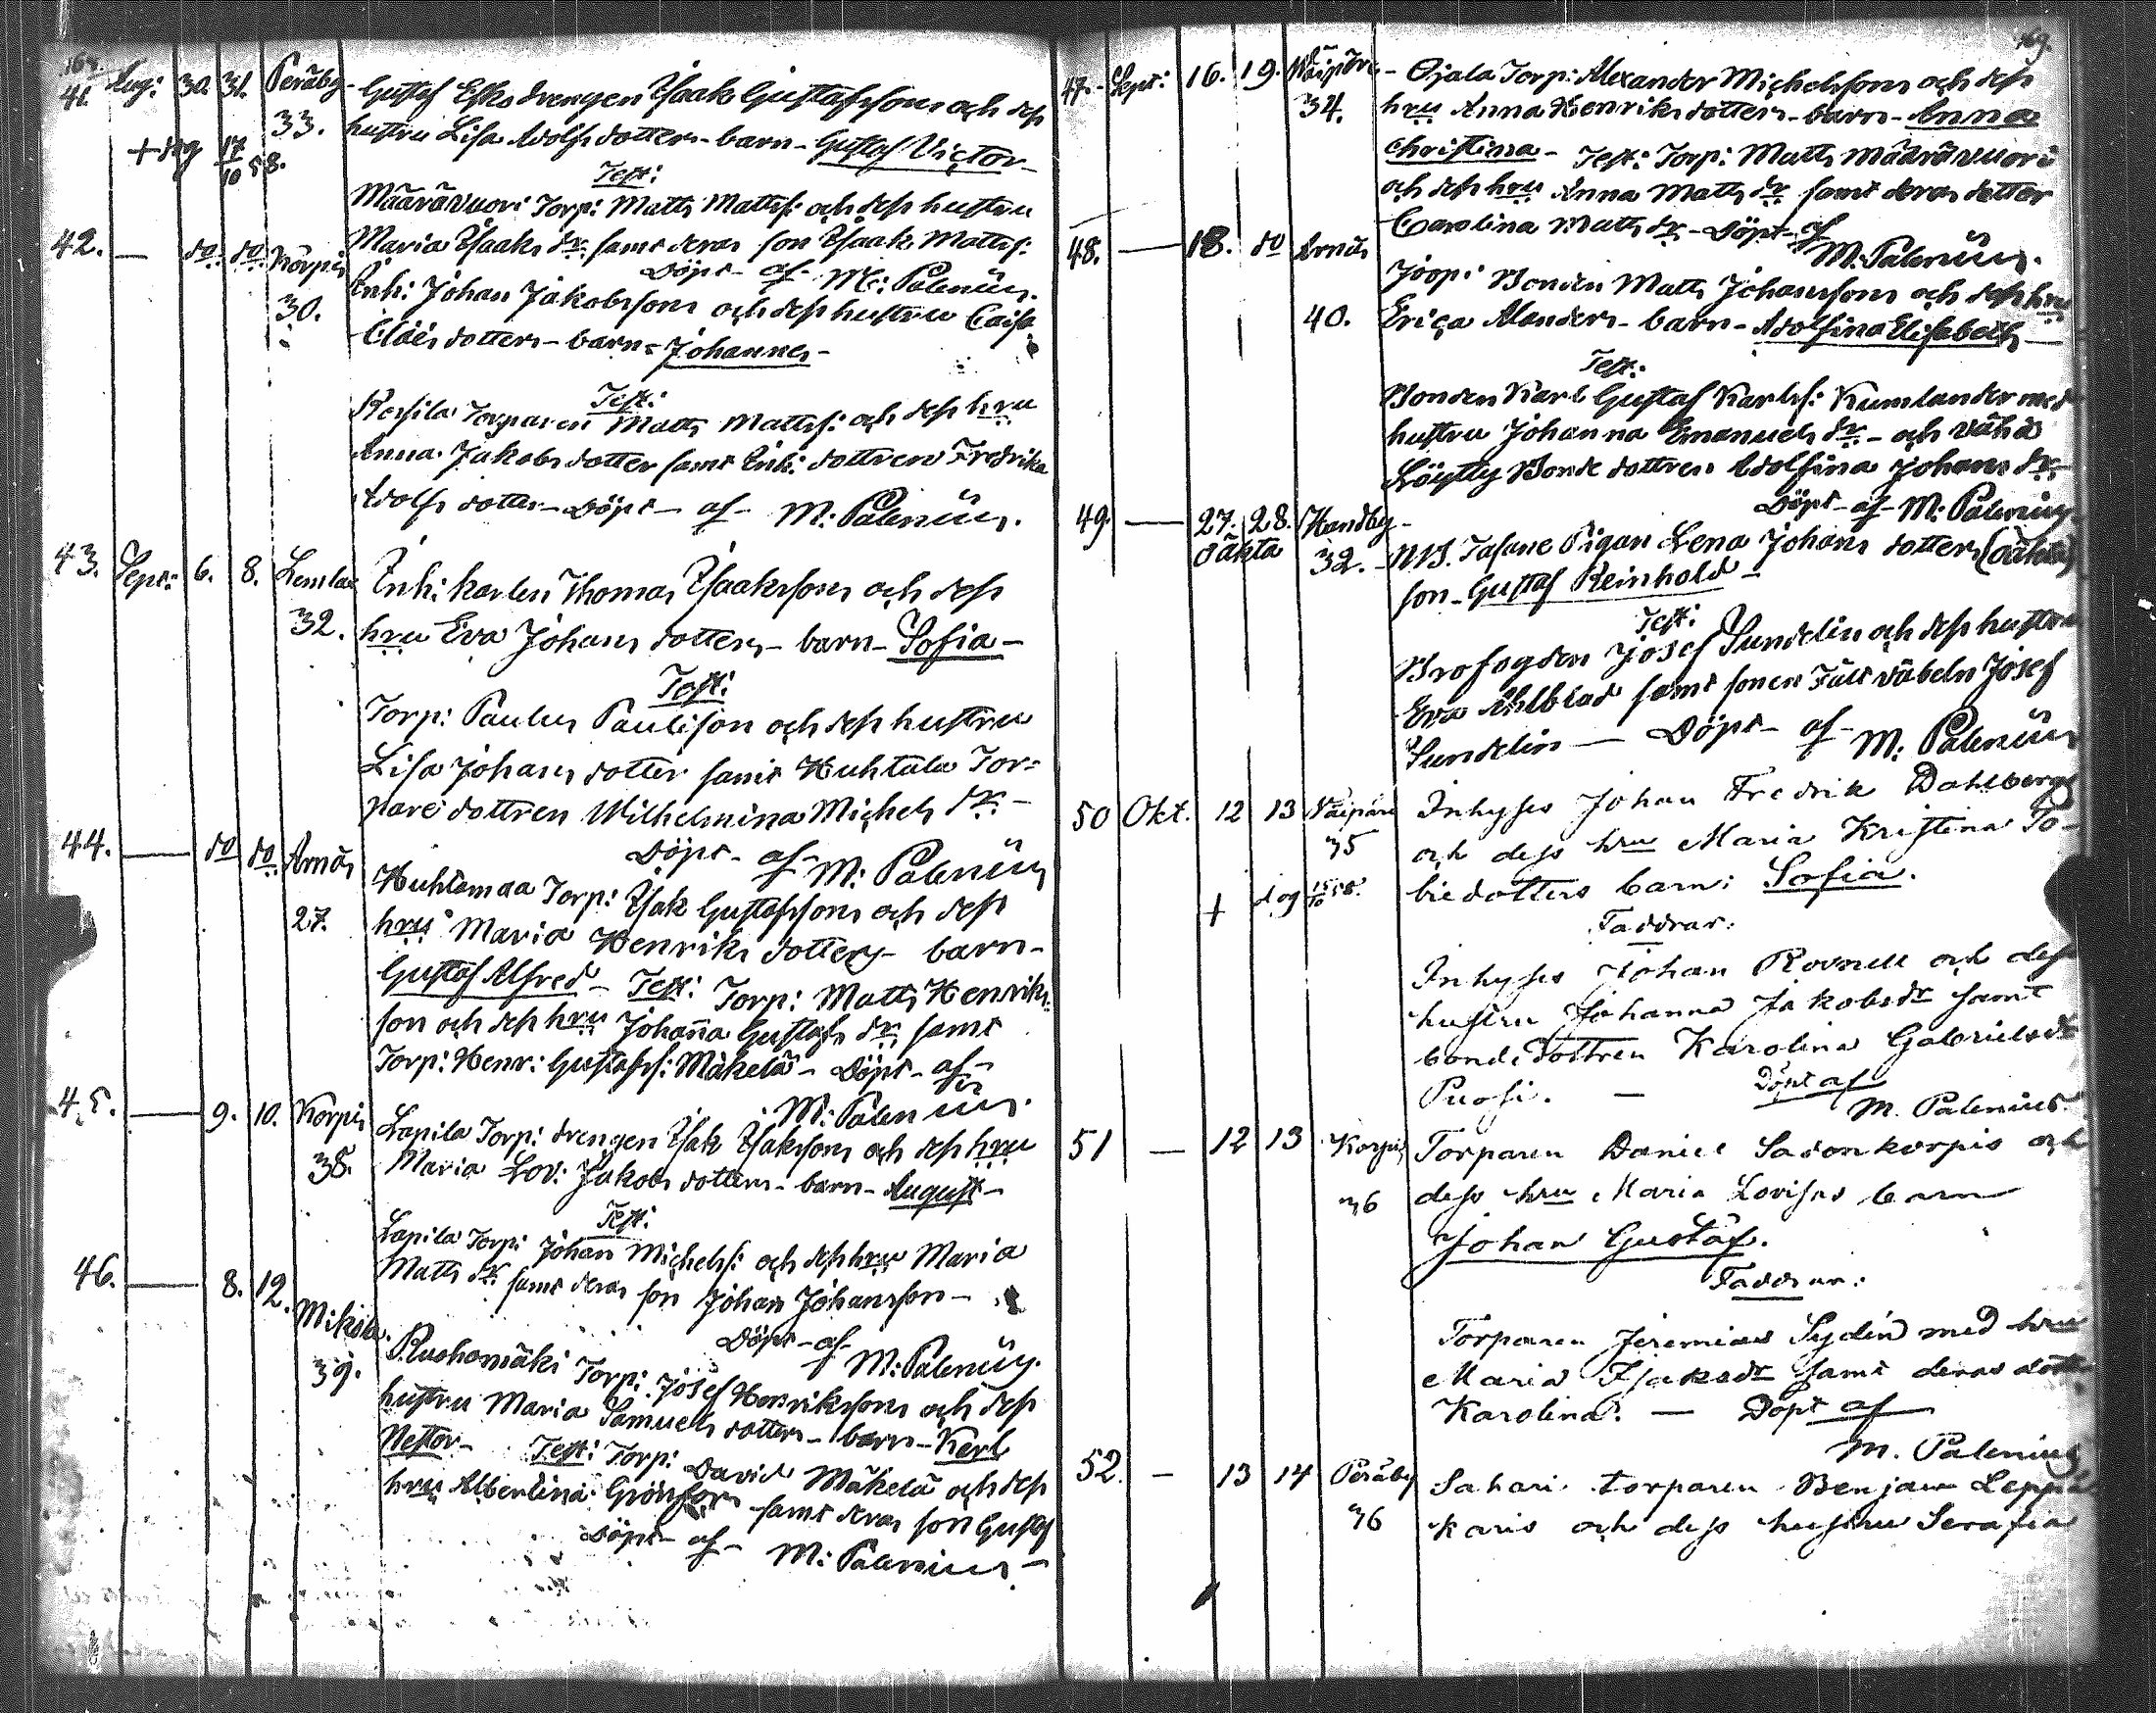 168.
41. Aug: 30. 31. Peräby- Gustaf Esko drengen Isaak Gustafssons och dess
33. hustru Lisa Adolfsdotters - barn - Gustaf Victor -
+ dog 17/10 58.
Test:
Määrävuori Torp: Matts Mattss: och dess hustru
Maria Isaaks dr. samt deras son Isaak Mattss:
Döpt - af - M: Palenius.
42. — do. do. Korpis Inh: Johan Jakobssons och dess hustru Caisa
30. Claësdotters - barn - Johannes -
Test:
Torparen Matts Mattss: och dess hru
Anna Jakobsdotter samt Inh: dottren Fredrika
Adolfsdotter - Döpt - af - M: Palenius.
43. Sept: 6. 8. Lemlax Inh: karlen Thomas Isaakssons och dess
32. hru Eva Johans dotters - barn - Sofia -
Test:
Torp: Paulus Paulisson och dess hustru
Lisa Johansdotter samt Huhtala Tor=
pare dottren Wilhelmina Michels dr. -
Döpt - af - M: Palenius
44. — do do. Arnäs Huhtamaa Torp: Isak Gustafssons och dess
27. hru Maria Henriks dotters - barn -
Gustaf Alfred - Test: Torp: Matts Henriks
son och dess hru Johanna Gustafs dr. samt
Torp: Henr: Gustafss: Mäkelä - Döpt - af -
M: Palenius.
45. — 9. 10. Korpis Lapila Torp: drengen Isak Isakssons och dess hru
38. Maria Lov: Jakobs dotters - barn - August -
Test:
Lapila Torp: Johan Michelss: och dess hru Maria
Matts dr. samt deras son Johan Johansson -
Döpt - af - M: Palenius.
46. — 8. 12. Mikola. Ruohomäki Torp: Josef Henrikssons och dess
39. hustru Maria Samuels dotters - barn - Karl
Nestor - Test: Torp: David Mäkelä och dess
hru Albertina Grönfors samt deras son Gustaf
Döpt - af - M: Palenius -
169.
47. - Sept: 16. 19. - Ojala Torp: Alexander Michelssons och dess
34. hru Anna Henriks dotters - barn - Anna
Christina - Test: Torp: Matts Määrävuori
och dess hru Anna Matts dr. samt deras dotter
Carolina Matts dr. - Döpt - af
M: Palenius.
48. — 18. do Arnäs Bonden Matts Johanssons och dess hru
40. Erica Alanders - barn - Adolfina Elisabeth —
Test:
Bonden Karl Gustaf Karlss: Kumlander med
hustru Johanna Emanuels dr. - och Vähä
Löytty Bonde dottren Adolfina Johans dr.
Döpt - af - M: Palenius.
49. — 27. 28. Handby -
oäkta 32. - Pigan Lena Johans dotters (oäkta)
son - Gustaf Reinhold -
Test:
Brofogden Josef Sundelin och dess hustru
Eva Ahlblad samt sonen Fält väbeln Josef
Sundelin — Döpt - af - M: Palenius
50 Okt. 12 13 Inhyses Johan Fredrik Dahlbergs
35 och dess hru Maria Kristina To-
+ dog 15/10 58. biedotters barn: Sofia.
Faddrar:
Inhyses Johan och dess
hustru Johanna Jakobsdr samt
bonde dottren Karolina Gabrielsdr
Puosi. — Döpt af
M. Palenius.
51 — 12 13 Korpis Torparen Daniel Sadonkorpis och
36 dess hru Maria Lovisas barn
Johan Gustaf.
Faddrar:
Torparen Jeremias Sydén med hru
Maria Isaksdr samt deras dotter
Karolina. — Döpt af
M. Palenius
52. — 13 14 Peräby Sahari torparen Benjam Leppä
36 karis och dess hustru Serafia